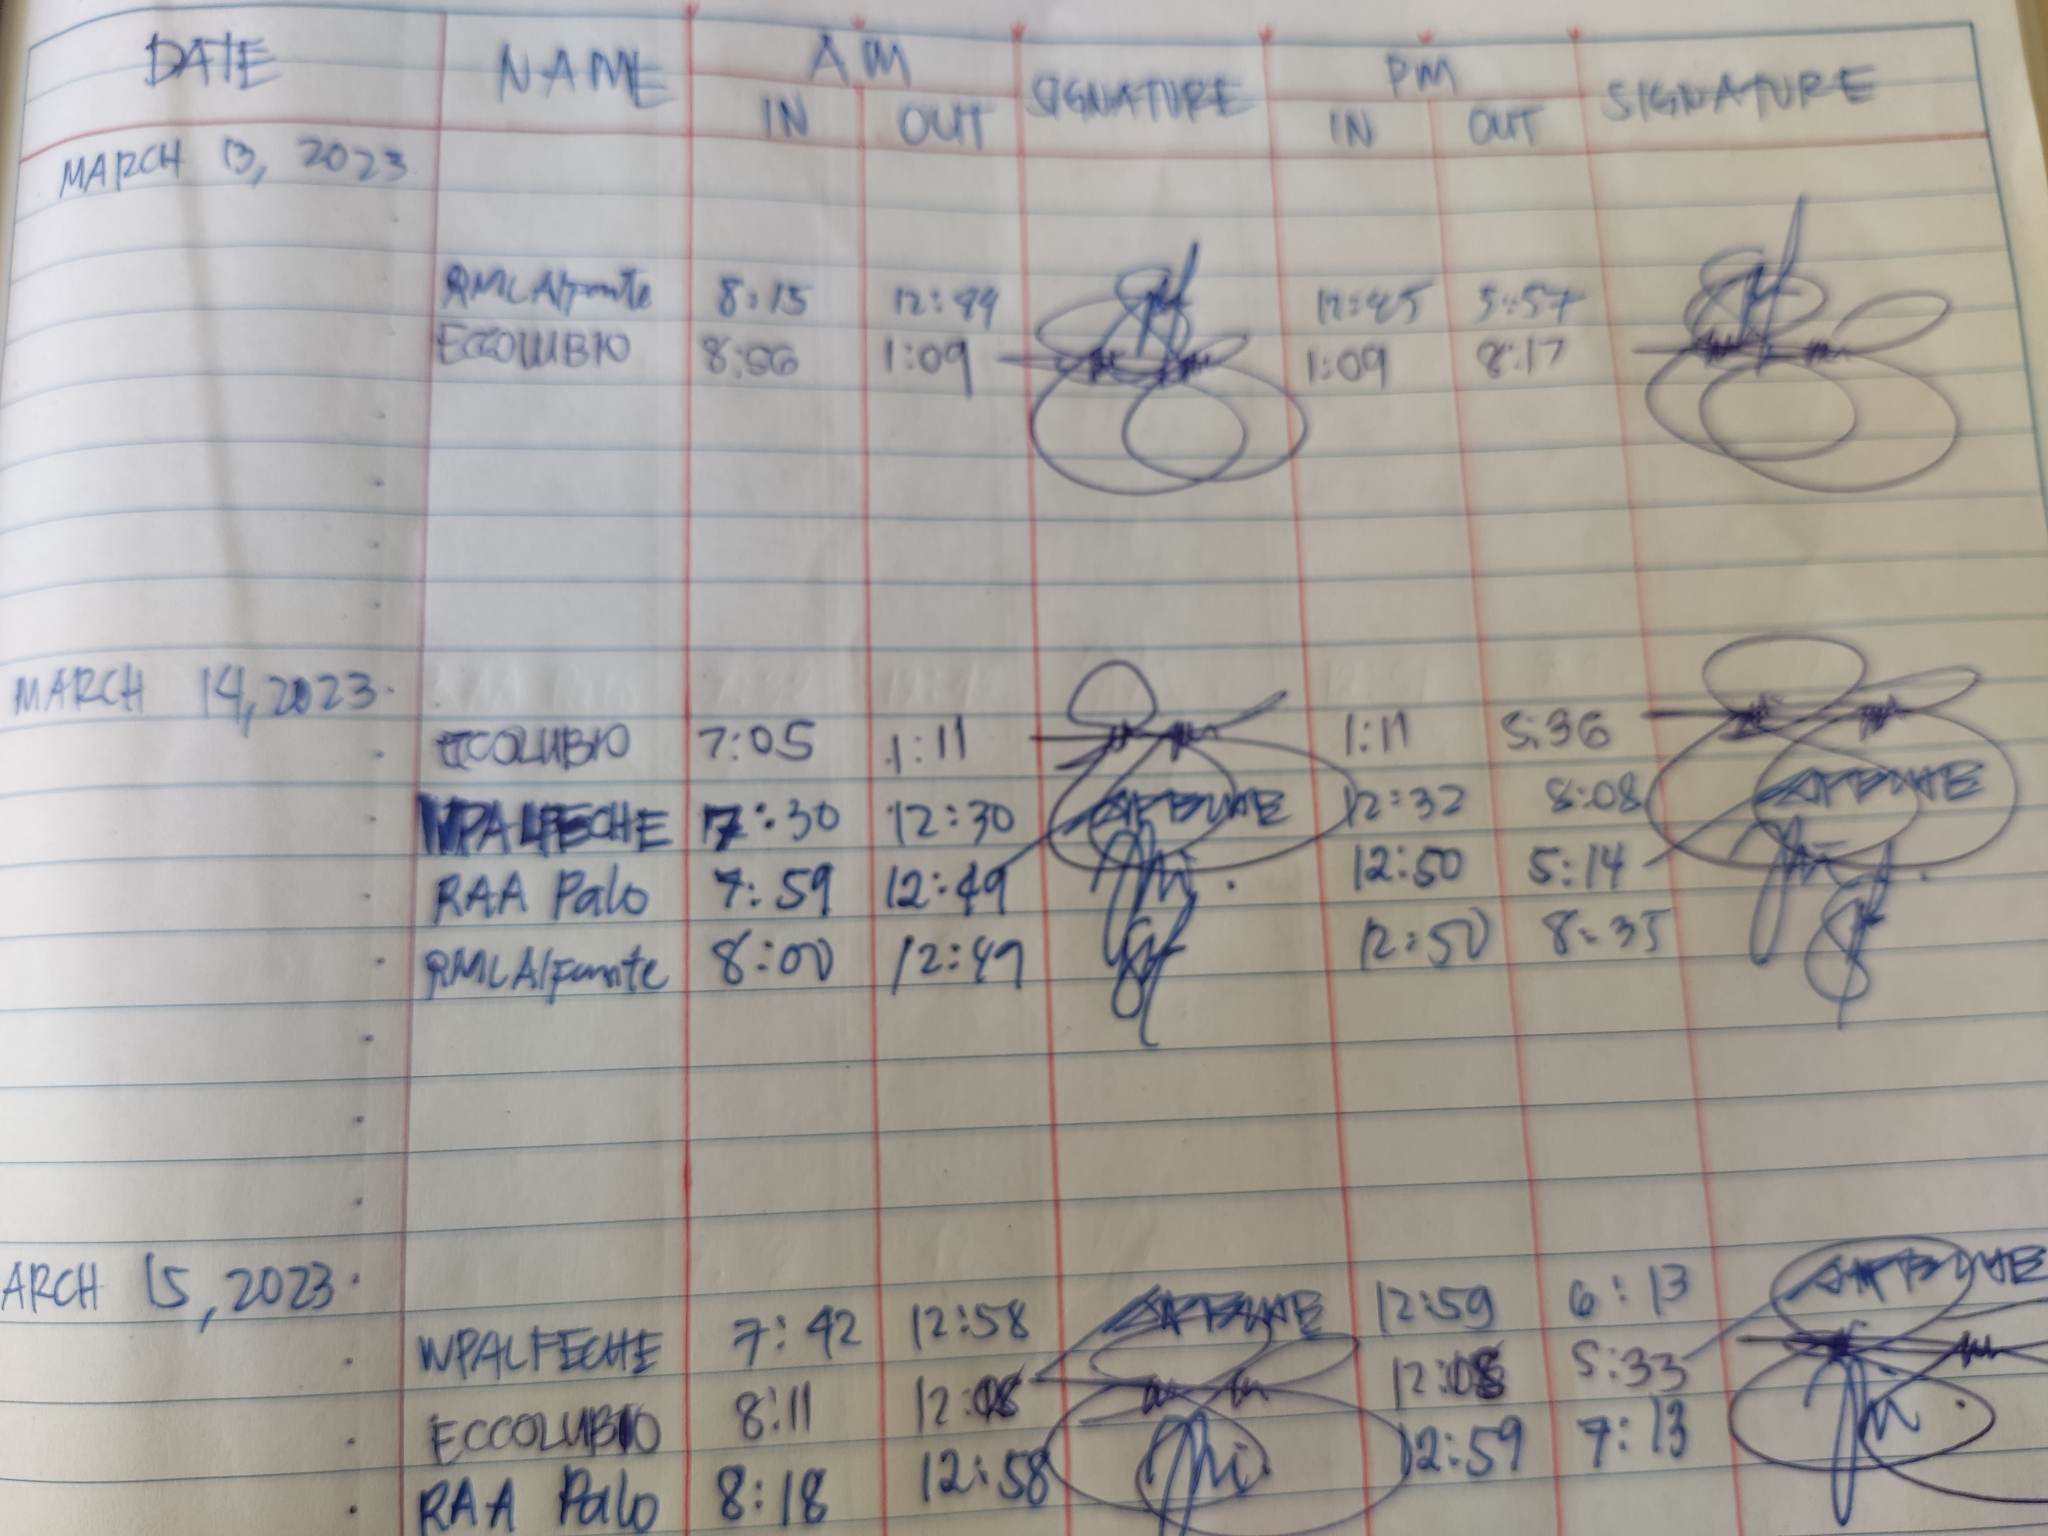 DATE NAME AM SIGNATURE PM SIGNATURE
IN OUT IN OUT
MARCH 13, 2023
RMLAlfante 8:15 12:44 12:45 5:57
ECCOLUBIO 8:56 1:09 1:09 8:17
MARCH 14, 2023
ECCOLUBIO 7:05 1:11 1:11 5:36
WPALFECHE 7:30 12:30 12:32 8:08
RAA Palo 7:59 12:49 12:50 5:14
RMLAlfante 8:00 12:49 12:50 8:35
ARCH 15, 2023
WPALFECHE 7:42 12:58 12:59 6:13
ECCOLUBIO 8:11 12:08 12:08 5:33
RAA Palo 8:18 12:58 12:59 7:13